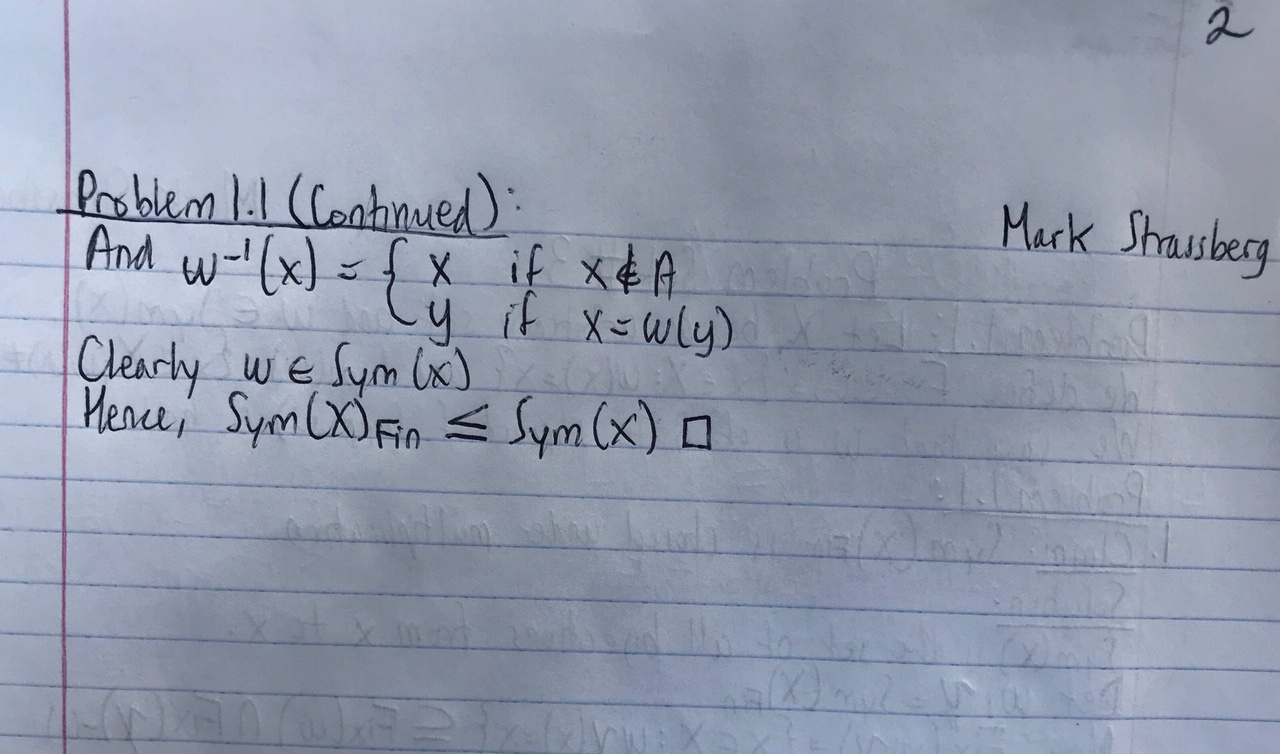 2
Problem 1.1 (Continued):
Mark Strassberg
And w⁻¹(x) = { x if x ∉ A
y if x = w(y)
Clearly w ∈ Sym(x)
Hence, Sym(X)Fin ≤ Sym(x) □